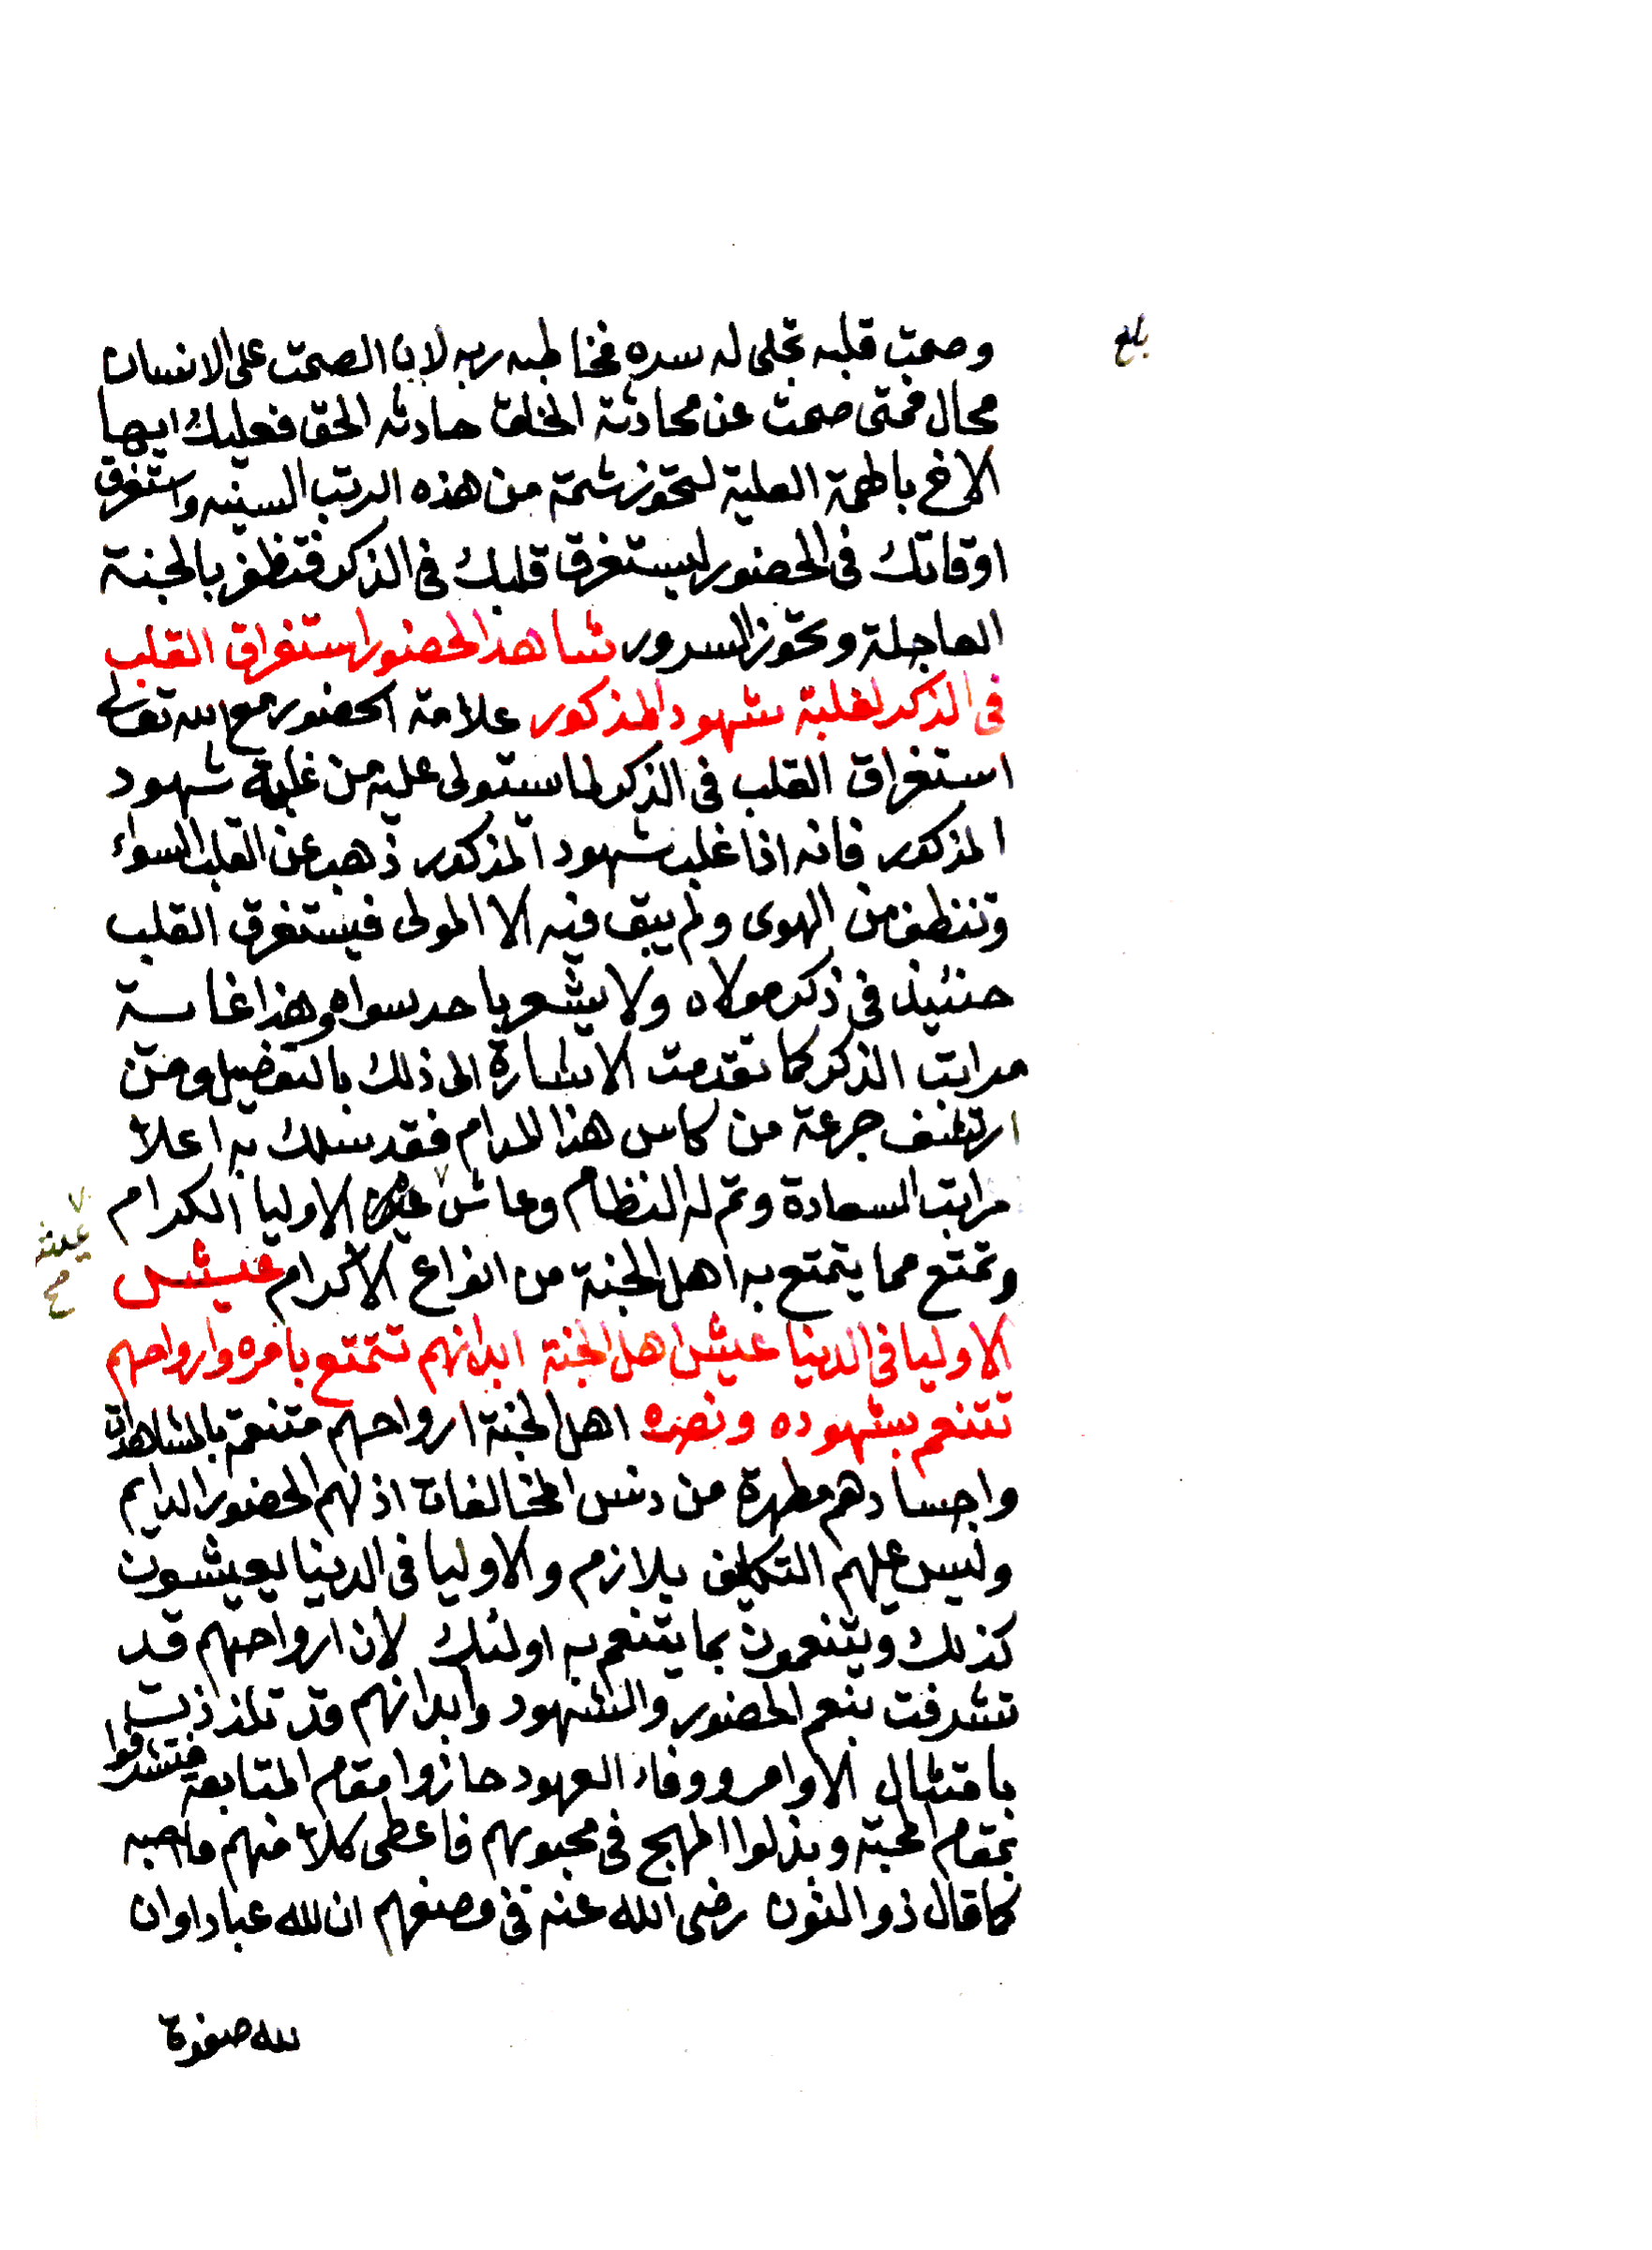 بلغ
وصمت قلبه تجلى له سره فخاطبه ربه لان الصمت على الانسان
محال فمتى صمت عن محادثة الخلق حادثه الحق فعليك ايها
الاخ بالهمة العلية لتحوز شمة من هذه الرتب السنيه واستغرق
اوقاتك فى الحضور ليستغرق قلبك فى الذكر فتظفر بالجنة
العاجلة وتحوز السرور شاهد الحضور استغراق القلب
فى الذكر لغلبة شهود المذكور علامة الحضور مع الله تعالى
استغراق القلب فى الذكر لما سيتولى عليه من غلبة شهود
المذكور فانه اذا غلب شهود المذكور ذهب عن القلب السواء
وتنظف من الهوى ولم يبق فيه الا المولى فيستغرق القلب
حنئيذ فى ذكر مولاه ولا يشعر باحد سواه وهذا غاية
مراتب الذكر كما تقدمت الاشارة الى ذلك بالتفضيل ومن
ارتشف جرعة من كاس هذا المدام فقد سلك به اعلا
مراتب السعادة وتم له النظام وعاش عيش الاوليا الكرام
عيش
صح
وتمتع مما يتمتع به اهل الجنة من انواع الاكرام عيش
الاوليا فى الدنيا عيش اهل الجنة ابدانهم تتمتع بامره وارواحهم
تتنعم بشهوده ونصره اهل الجنة ارواحهم متنعمة بالمشاهدات
واجسادهم مطهرة من دنس المخالفات اذ لهم الحضور الدايم
وليس عليهم التكليف بلازم والاوليا فى الدنيا يعيشون
كذلك ويتنعمون بما يتنعم به اولئك لان ارواحهم قد
تشرفت بنعم الحضور والشهود وابدانهم قد تلذذت
بامتثال الاوامر ووفاء العهود حازوا مقام المتابعة فتشرفوا
بمقام المحبة وبذلوا المهج فى محبوبهم فاعطى كلا منهم ما احبه
كما قال ذو النون رضى الله عنه فى وصفهم ان لله عبادا وان
لله صفوة